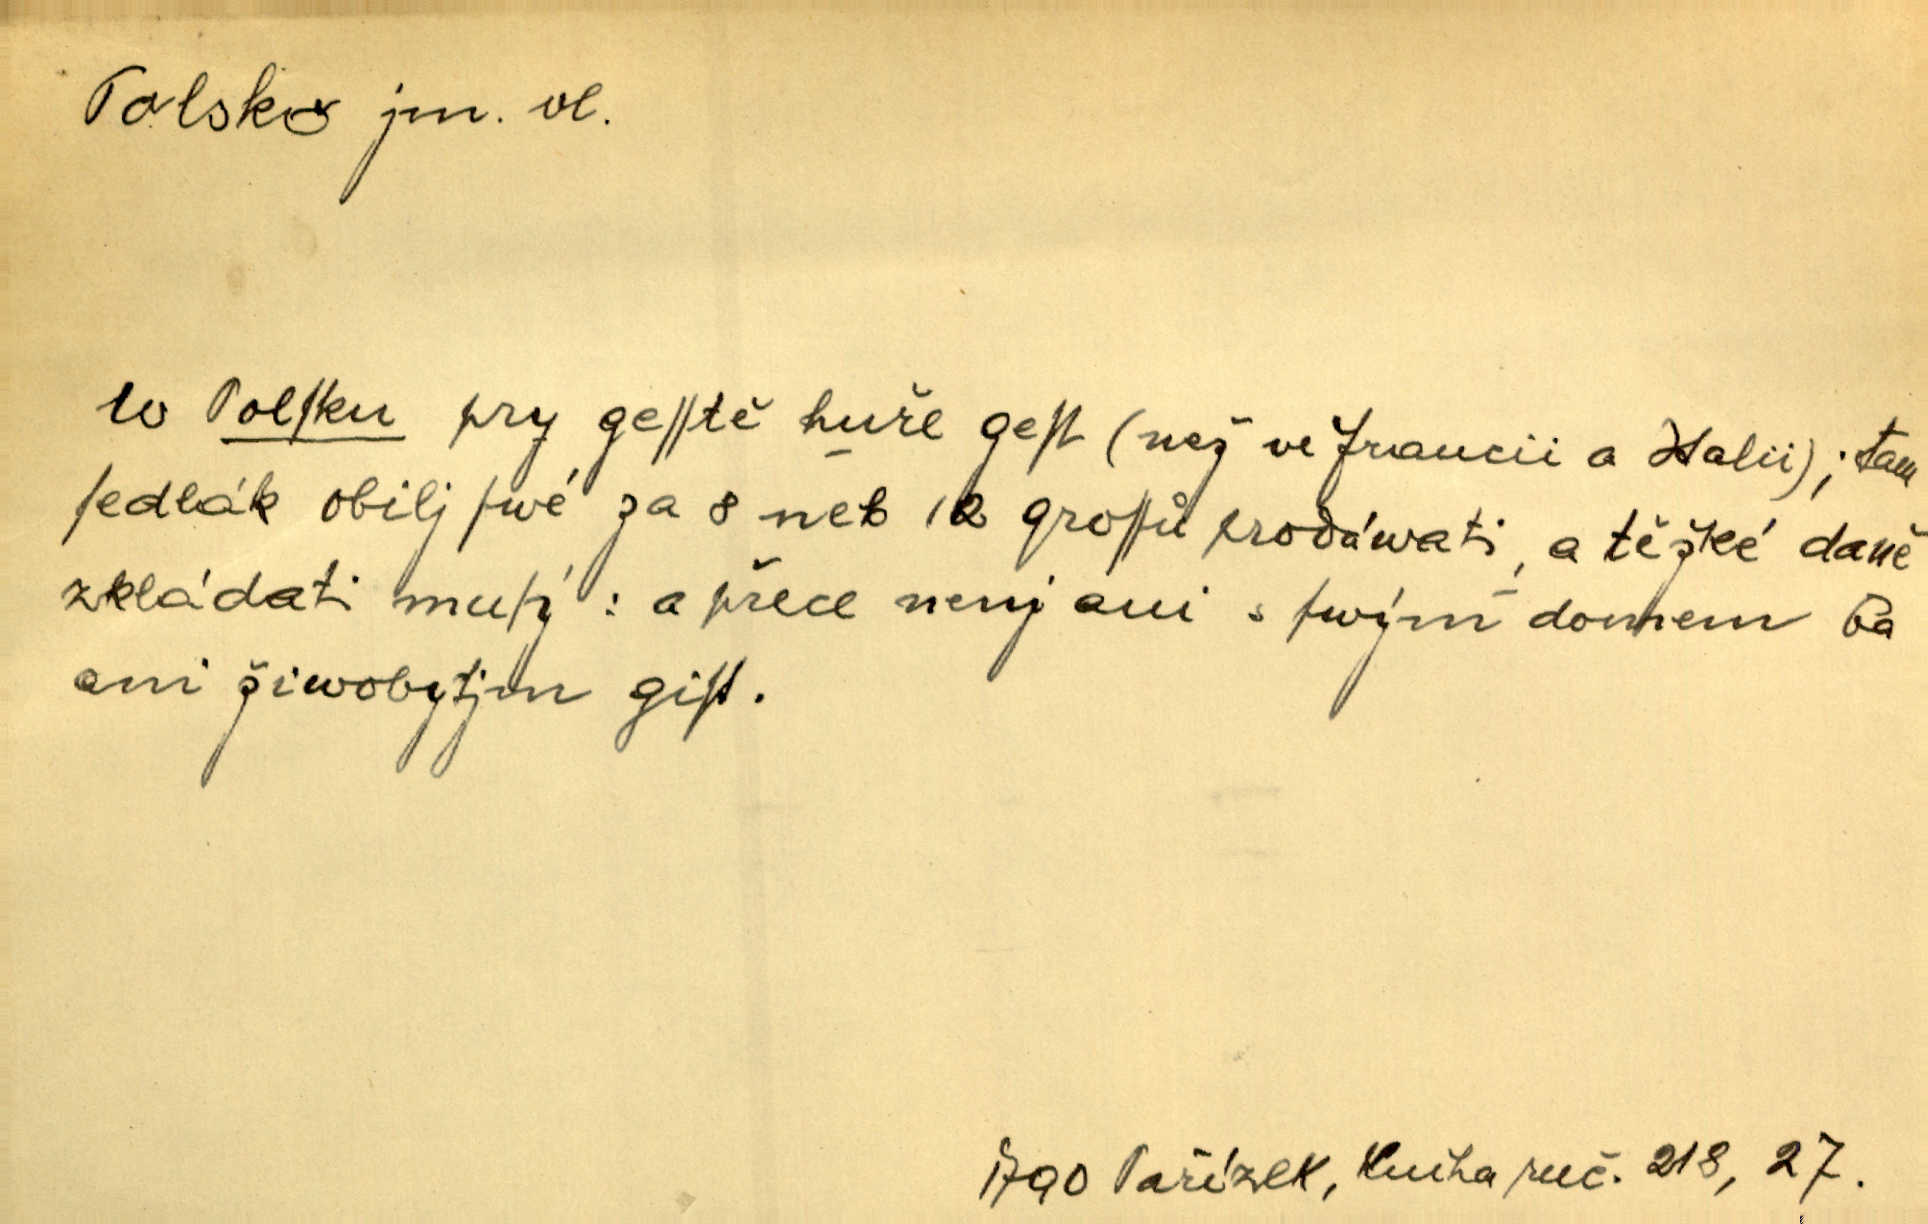 Polsko jm. vl.
W Polſku pry geſſtě huře geſt (než ve Francii a Italii); tam
ſedlák obilj ſwé za 8 neb 12 groſſů prodáwati, a těžké daně
zkládati muſý : a přece nenj ani s ſwým domem ba
ani žiwobytjm giſt.
1790 Pařízek, Kniha ruč. 218, 27.